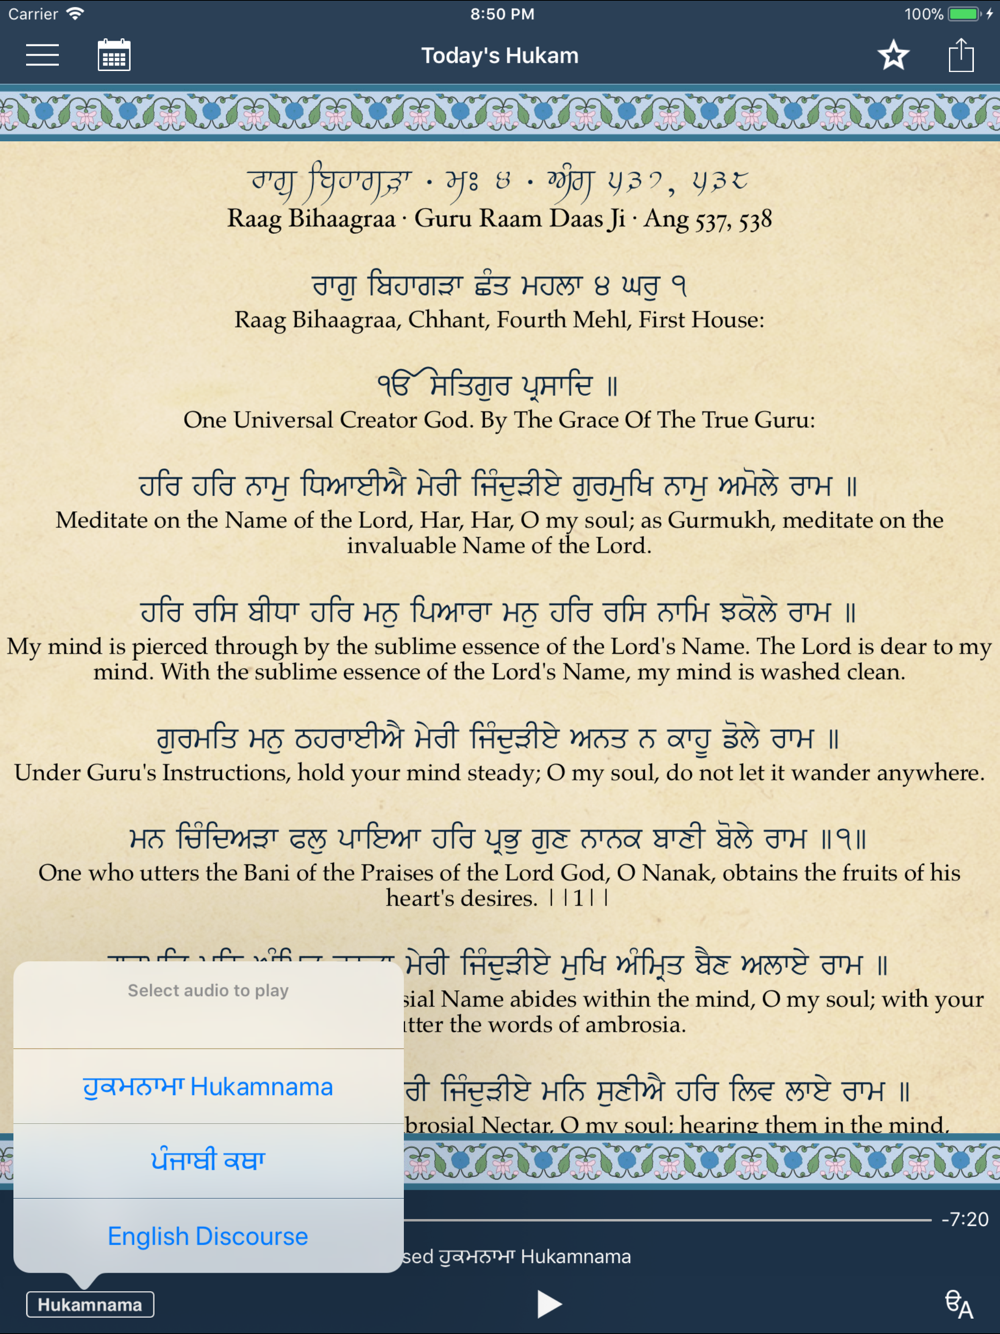 Carrier 8:50 PM 100%
Today's Hukam
ਰਾਗੁ ਬਿਹਾਗੜਾ · ਮਃ ੪ · ਅੰਗ ੫੩੭, ੫੩੮
Raag Bihaagraa · Guru Raam Daas Ji · Ang 537, 538
ਰਾਗੁ ਬਿਹਾਗੜਾ ਛੰਤ ਮਹਲਾ ੪ ਘਰੁ ੧
Raag Bihaagraa, Chhant, Fourth Mehl, First House:
ੴ ਸਤਿਗੁਰ ਪ੍ਰਸਾਦਿ ॥
One Universal Creator God. By The Grace Of The True Guru:
ਹਰਿ ਹਰਿ ਨਾਮੁ ਧਿਆਈਐ ਮੇਰੀ ਜਿੰਦੁੜੀਏ ਗੁਰਮੁਖਿ ਨਾਮੁ ਅਮੋਲੇ ਰਾਮ ॥
Meditate on the Name of the Lord, Har, Har, O my soul; as Gurmukh, meditate on the
invaluable Name of the Lord.
ਹਰਿ ਰਸਿ ਬੀਧਾ ਹਰਿ ਮਨੁ ਪਿਆਰਾ ਮਨੁ ਹਰਿ ਰਸਿ ਨਾਮਿ ਝਕੋਲੇ ਰਾਮ ॥
My mind is pierced through by the sublime essence of the Lord's Name. The Lord is dear to my
mind. With the sublime essence of the Lord's Name, my mind is washed clean.
ਗੁਰਮਤਿ ਮਨੁ ਠਹਰਾਈਐ ਮੇਰੀ ਜਿੰਦੁੜੀਏ ਅਨਤ ਨ ਕਾਹੂ ਡੋਲੇ ਰਾਮ ॥
Under Guru's Instructions, hold your mind steady; O my soul, do not let it wander anywhere.
ਮਨ ਚਿੰਦਿਅੜਾ ਫਲੁ ਪਾਇਆ ਹਰਿ ਪ੍ਰਭੁ ਗੁਣ ਨਾਨਕ ਬਾਣੀ ਬੋਲੇ ਰਾਮ ॥੧॥
One who utters the Bani of the Praises of the Lord God, O Nanak, obtains the fruits of his
heart's desires. ||1||
ਮੇਰੀ ਜਿੰਦੁੜੀਏ ਮੁਖਿ ਅੰਮ੍ਰਿਤ ਬੈਣ ਅਲਾਏ ਰਾਮ ॥
sial Name abides within the mind, O my soul; with your
tter the words of ambrosia.
ਰੀ ਜਿੰਦੁੜੀਏ ਮਨਿ ਸੁਣੀਐ ਹਰਿ ਲਿਵ ਲਾਏ ਰਾਮ ॥
brosial Nectar, O my soul; hearing them in the mind,
Select audio to play
ਹੁਕਮਨਾਮਾ Hukamnama
ਪੰਜਾਬੀ ਕਥਾ
English Discourse
-7:20
sed ਹੁਕਮਨਾਮਾ Hukamnama
Hukamnama
ੳA